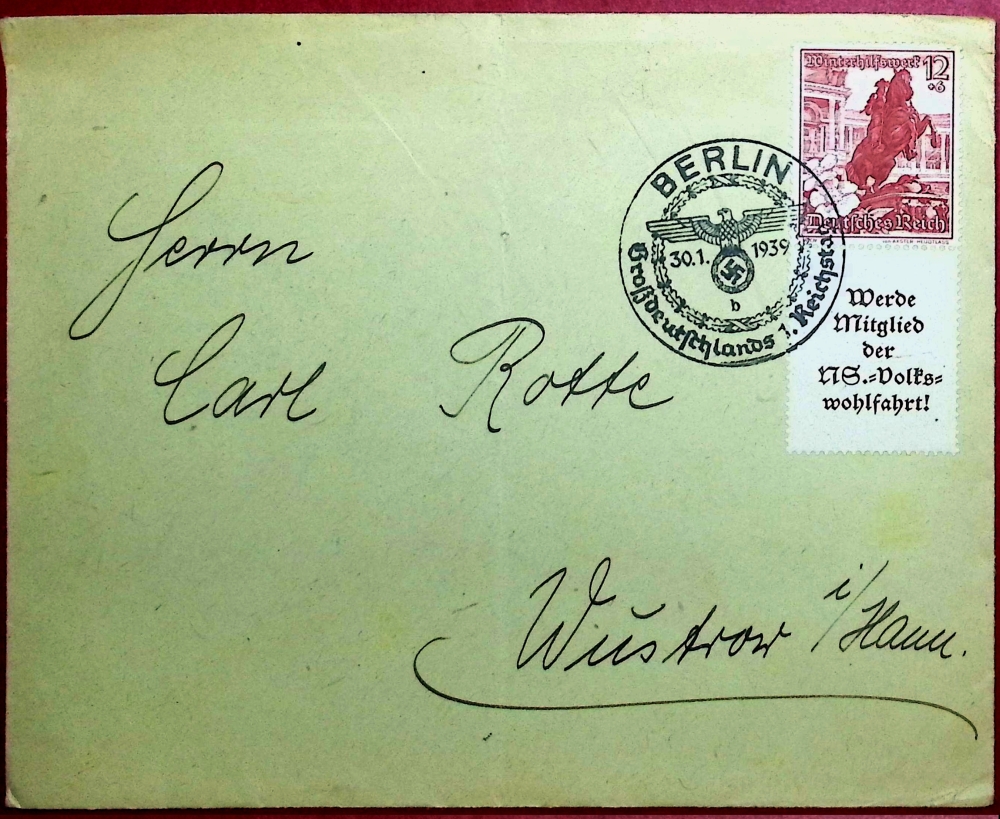 Winterhilfswerk 12
+6
Deutsches Reich
BERLIN
30.1. 1939
b
Großdeutschlands 1. Reichstag
Werde
Mitglied
der
NS.=Volks=
wohlfahrt!
Herrn
Carl Rotte
Wustrow i/Hann.